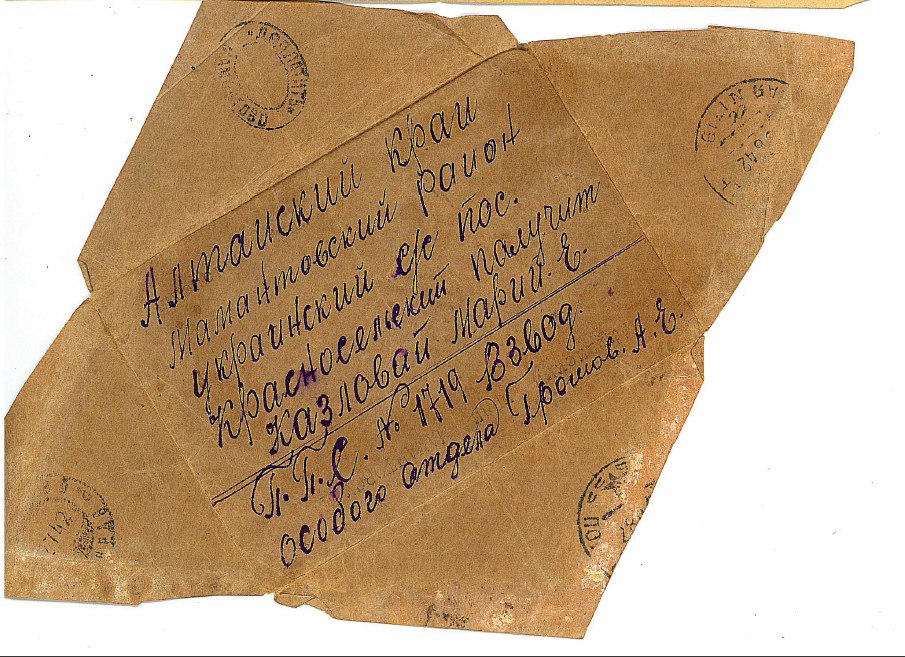 Алтайский край
Мамантовский район
украинский с/с пос.
красносельский палучит
казловай Марии. Е.
П.П.С. № 1719 Взвод.
особого атдела Громов. А. Е.